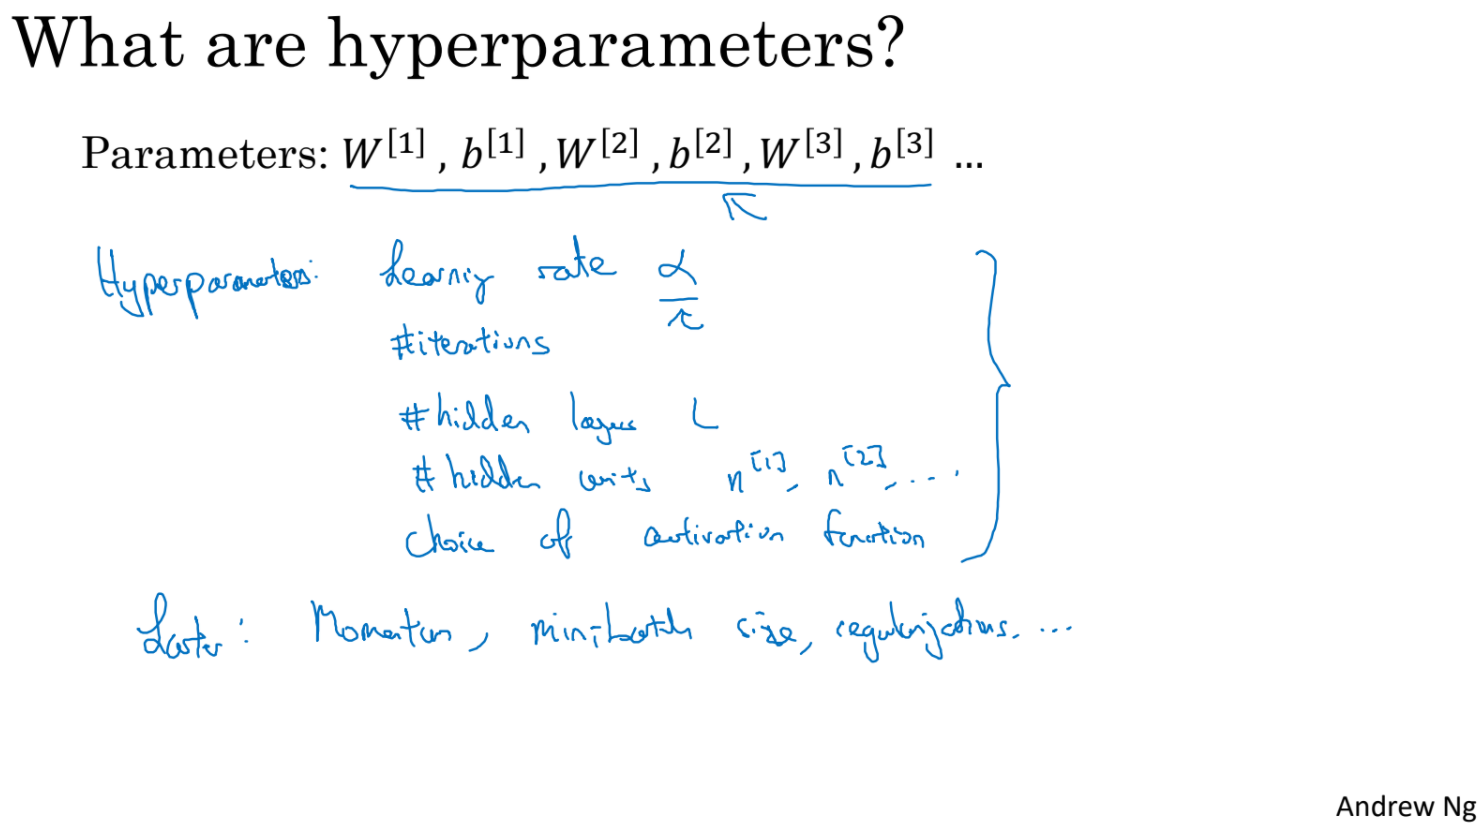 What are hyperparameters?
Parameters: W[1] , b[1] , W[2] , b[2] , W[3] , b[3] ...
Hyperparameters: Learning rate α
#iterations
#hidden layers L
# hidden units n[1], n[2], ....
Choice of activation function
Later: Momentum, mini-batch size, regularizations. ...
Andrew Ng